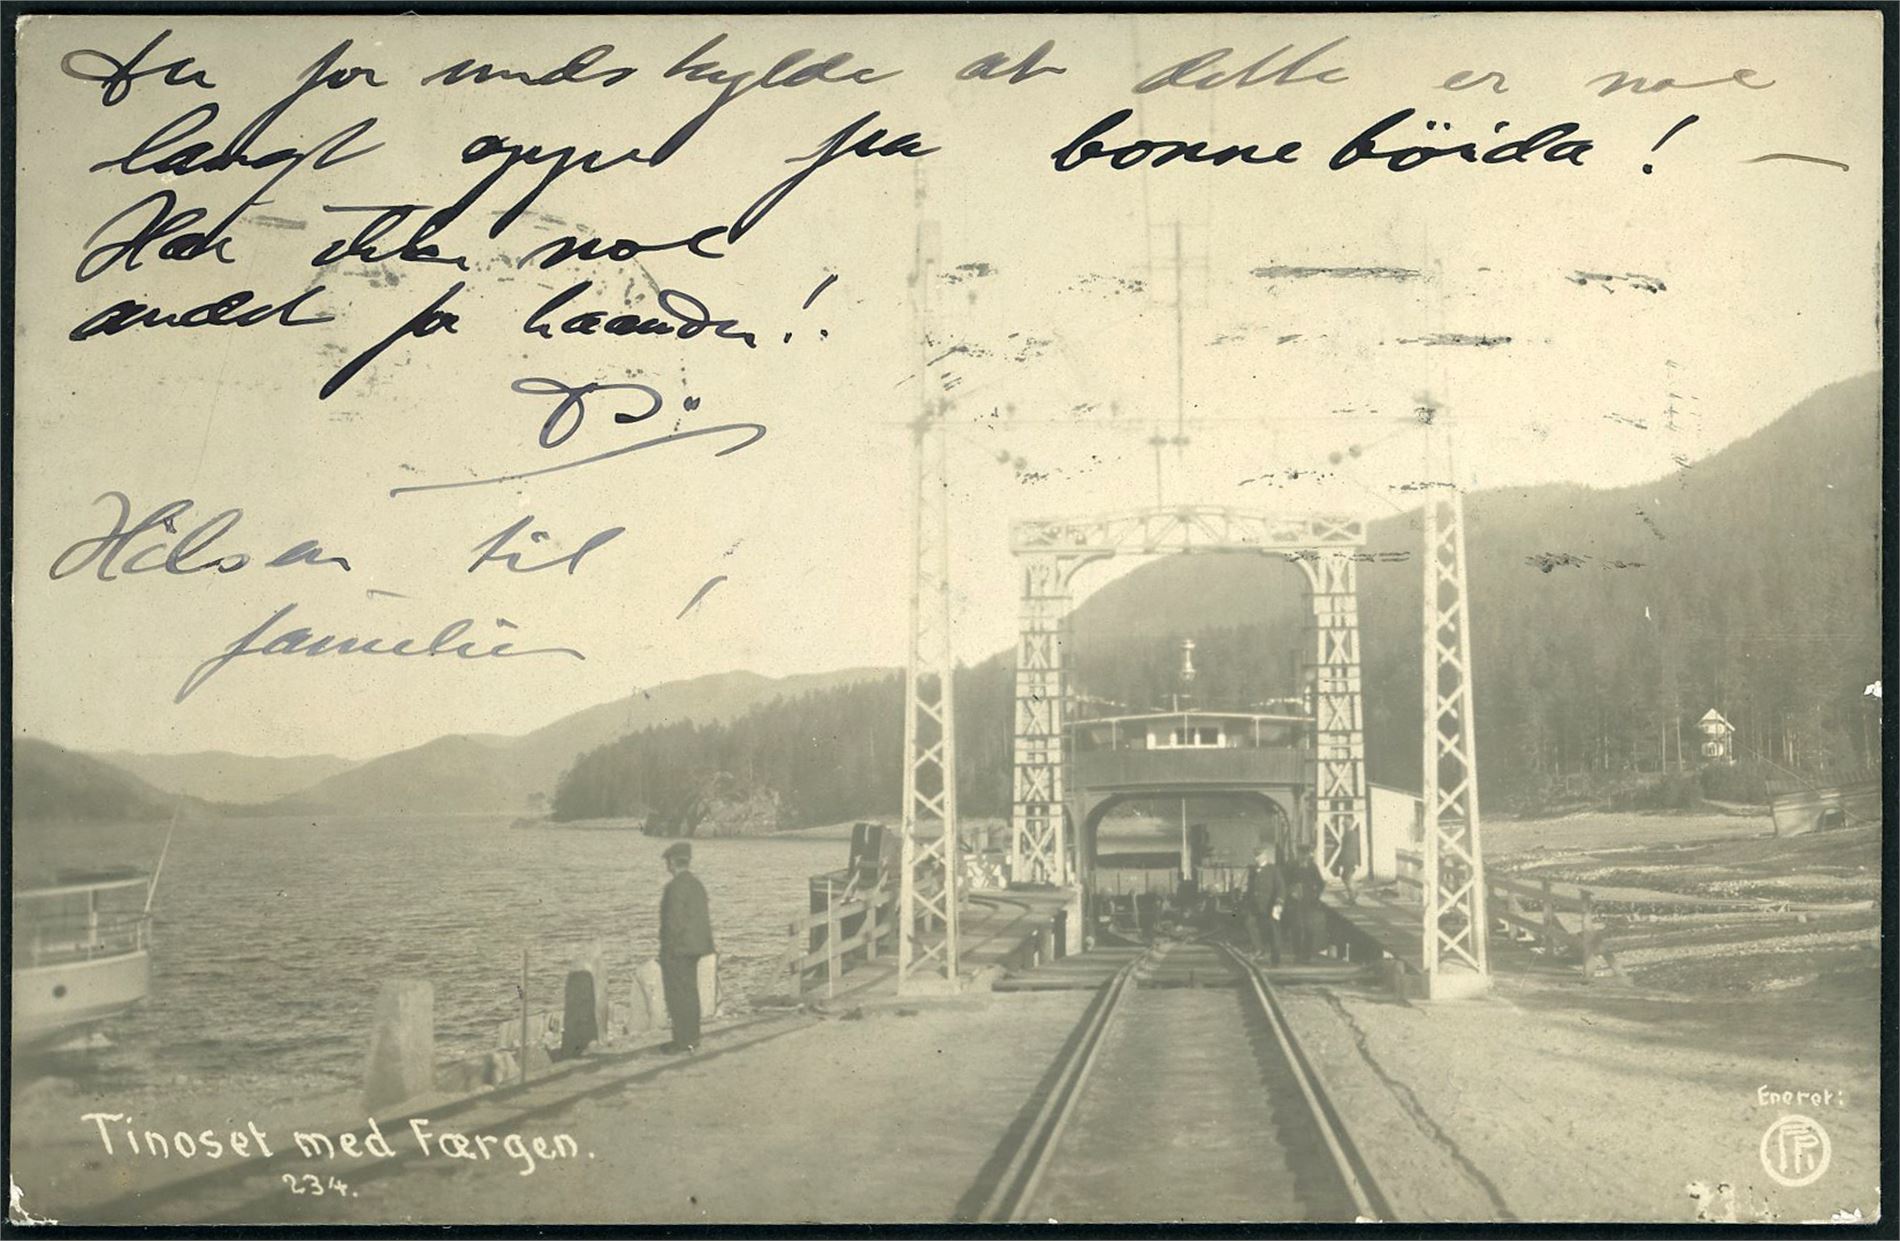 Du får undskylde at dette er noe
langt oppe fra bonneböida! —
Har ikke noe
andet for haanden!
Hilsen til
familien!
Tinoset med Færgen.
234.
Eneret: